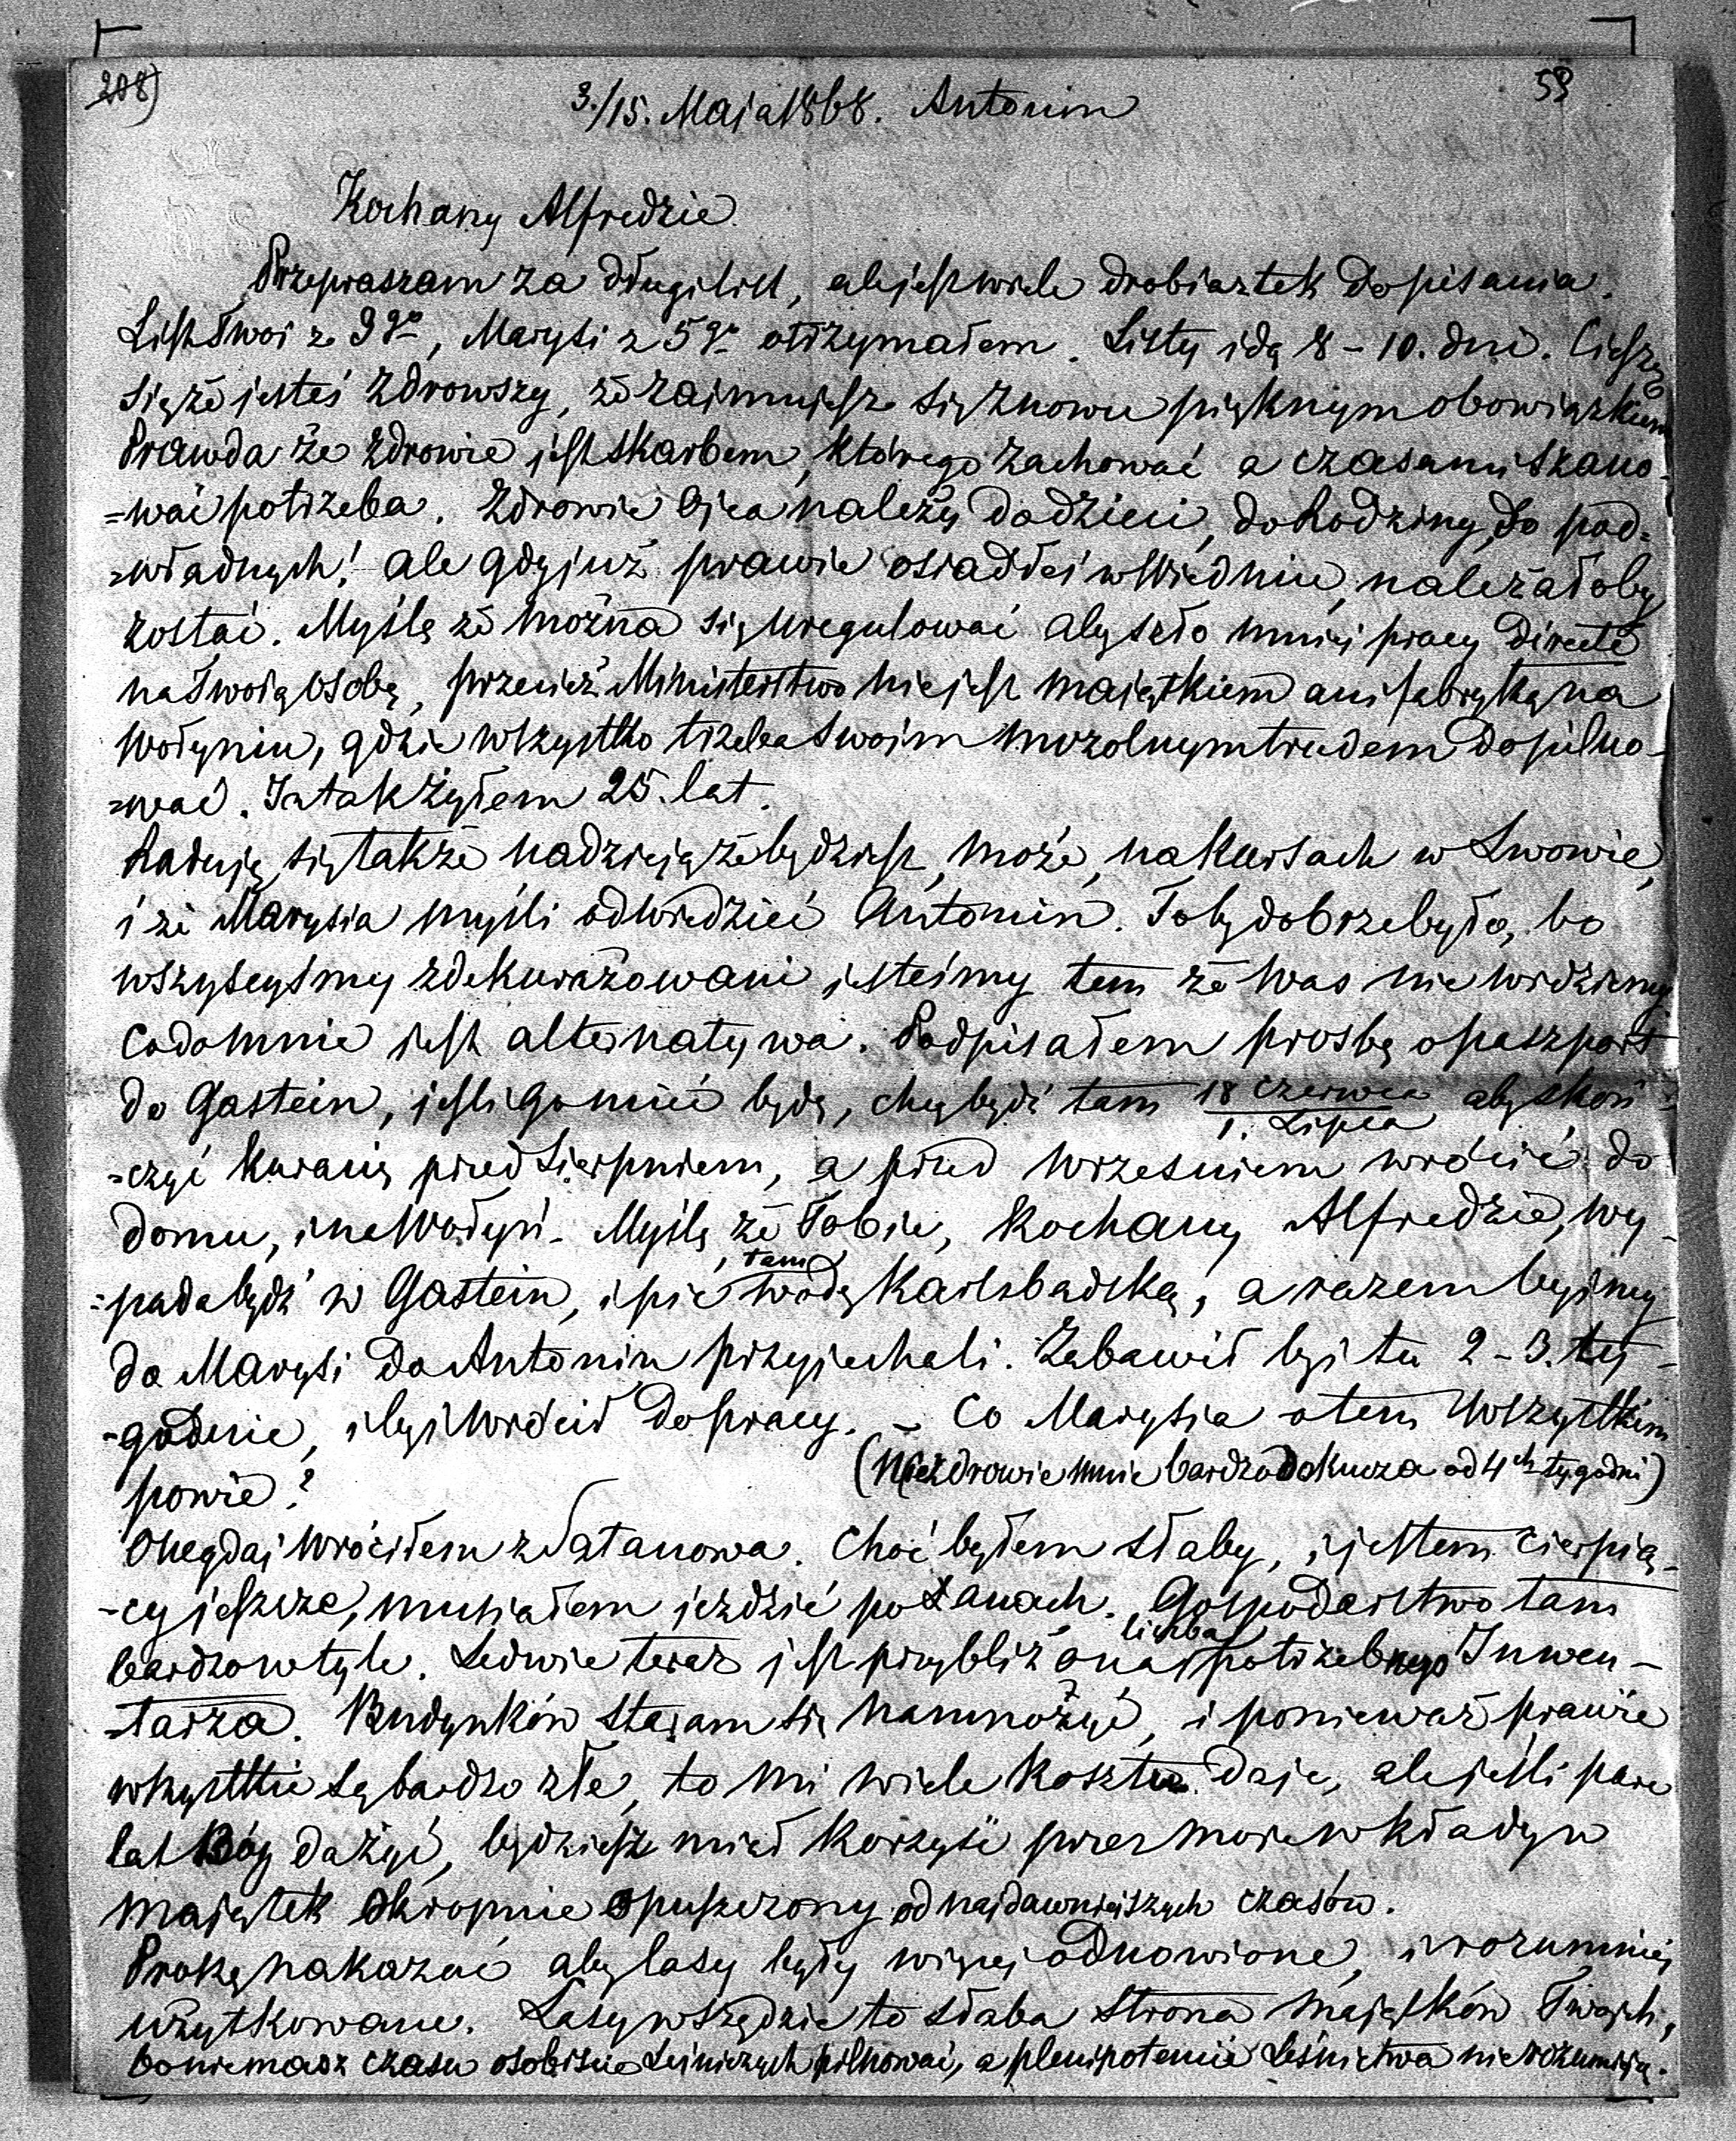 208)
59
3./15. Maja 1868. Antonin
Kochany Alfredzie
Przepraszam za długi list, ale jest wiele drobiaztek do pisania.
List Twoi z 3go, Marysi z 5go otrzymałem. Listy idą 8 - 10. dni. Cieszę
się że jesteś zdrowszy, że zaimujesz się znowu pięknym obowiązkiem
Prawda że zdrowie jest skarbem, którego zachować a czasami szano-
=wać potrzeba. Zdrowie Ojca należy do dzieci, do Rodziny, do pod=
=władnych! ale gdy już prawie osiadłeś w Wiedniu, należałoby
zostać. Myślę że można się uregulować aby szło mniej pracy directe
na Twoią osobę, przecież Ministerstwo nie jest maiątkiem ani fabryką na
Wołyniu, gdzie wszystko trzeba swoim mozolnym trudem dopilno-
=wać. Ja tak żyłem 25. lat.
Raduję się także nadzieją że będziesz, może, na Kursach w Lwowie,
i że Marysia myśli odwiedzić Antonin. To by dobrze było, bo
wszyscyśmy zdekurażowani jesteśmy tem że Was nie widziemy
Co do mnie jest alternatywa. Podpisałem prosbę o paszport
do Gastein, jesli go mieć będę, chcę bydź tam 18 Czerwca / 1. Lipca aby skoń-
=czyć kuracię przed Sierpniem, a przed Wrzesniem wrócić do
domu, i na Wołyń. Myślę że Tobie, Kochany Alfredzie, wy-
=pada bydź w Gastein, i pić tam wodę Karlsbadską, a razem byśmy
do Marysi do Antonin przyjechali. Zabawił byś tu 2 - 3. ty-
-godnie, i byś wrócił do pracy. - Co Marysia o tem wszystkim
powie?
(Niezdrowie mnie bardzo dokucza od 4ch tygodni)
Onegdaj wróciłem z Satanowa. Choć byłem słaby, i jestem cierpią-
-cy jeszcze, musiałem jeździć po Łanach. Gospodarstwo tam
bardzo w tyle. Ledwie teraz jest przybliżona liczba potrzebnego Inwen-
-tarza. Budynków staram się namnożyć, i ponieważ prawie
wszystkie są bardzo złe, to mi wiele kosztu daje, ale jeśli parę
lat Bóg da żyć, będziesz miał korzyść przez moje wkłady w
majątek okropnie opuszczony od najdawniejszych czasów.
Proszę nakazać aby lasy były więcej odnowione, i rozumniej
użytkowane. Lasy wszędzie to słaba strona majątków Twoich,
bo nie masz czasu osobiscie Leśniczych pilnować, a plenipotencie Leśnictwa nie rozumieją.